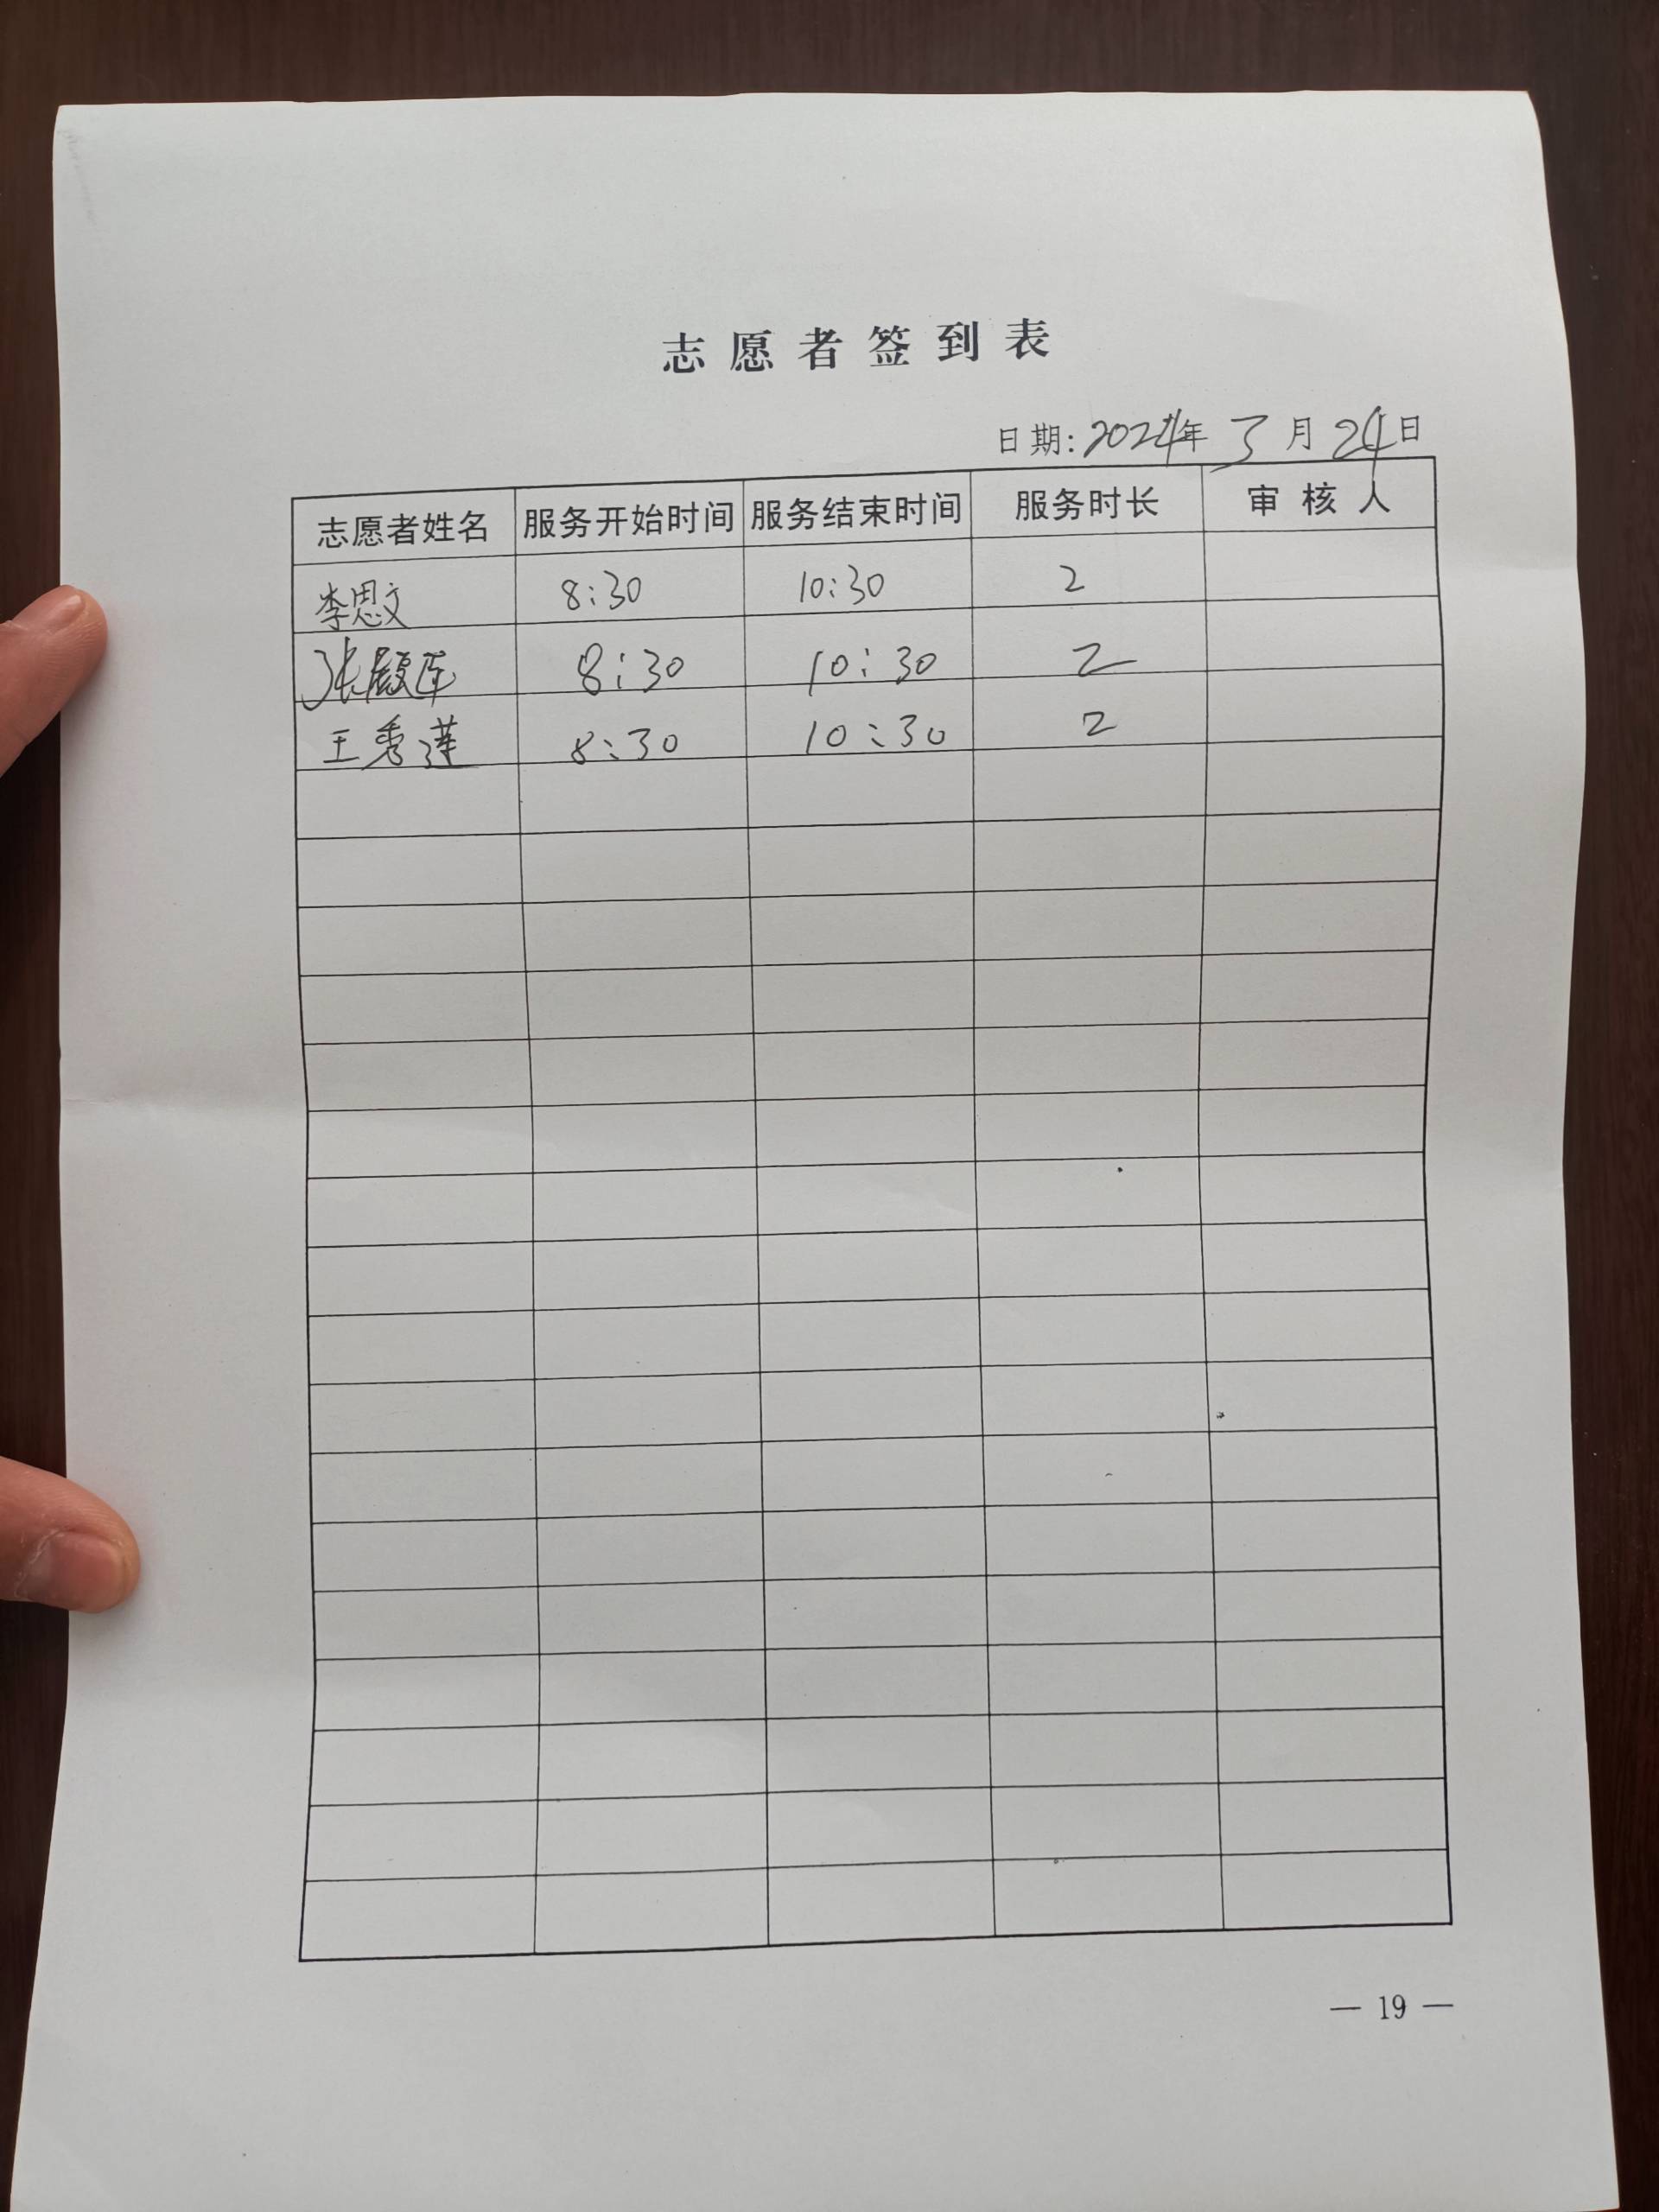 志愿者签到表
日期:2024年3月24日
志愿者姓名 服务开始时间 服务结束时间 服务时长 审核人
李思文 8:30 10:30 2
8:30 10:30 2
王秀莲 8:30 10:30 2
— 19 —